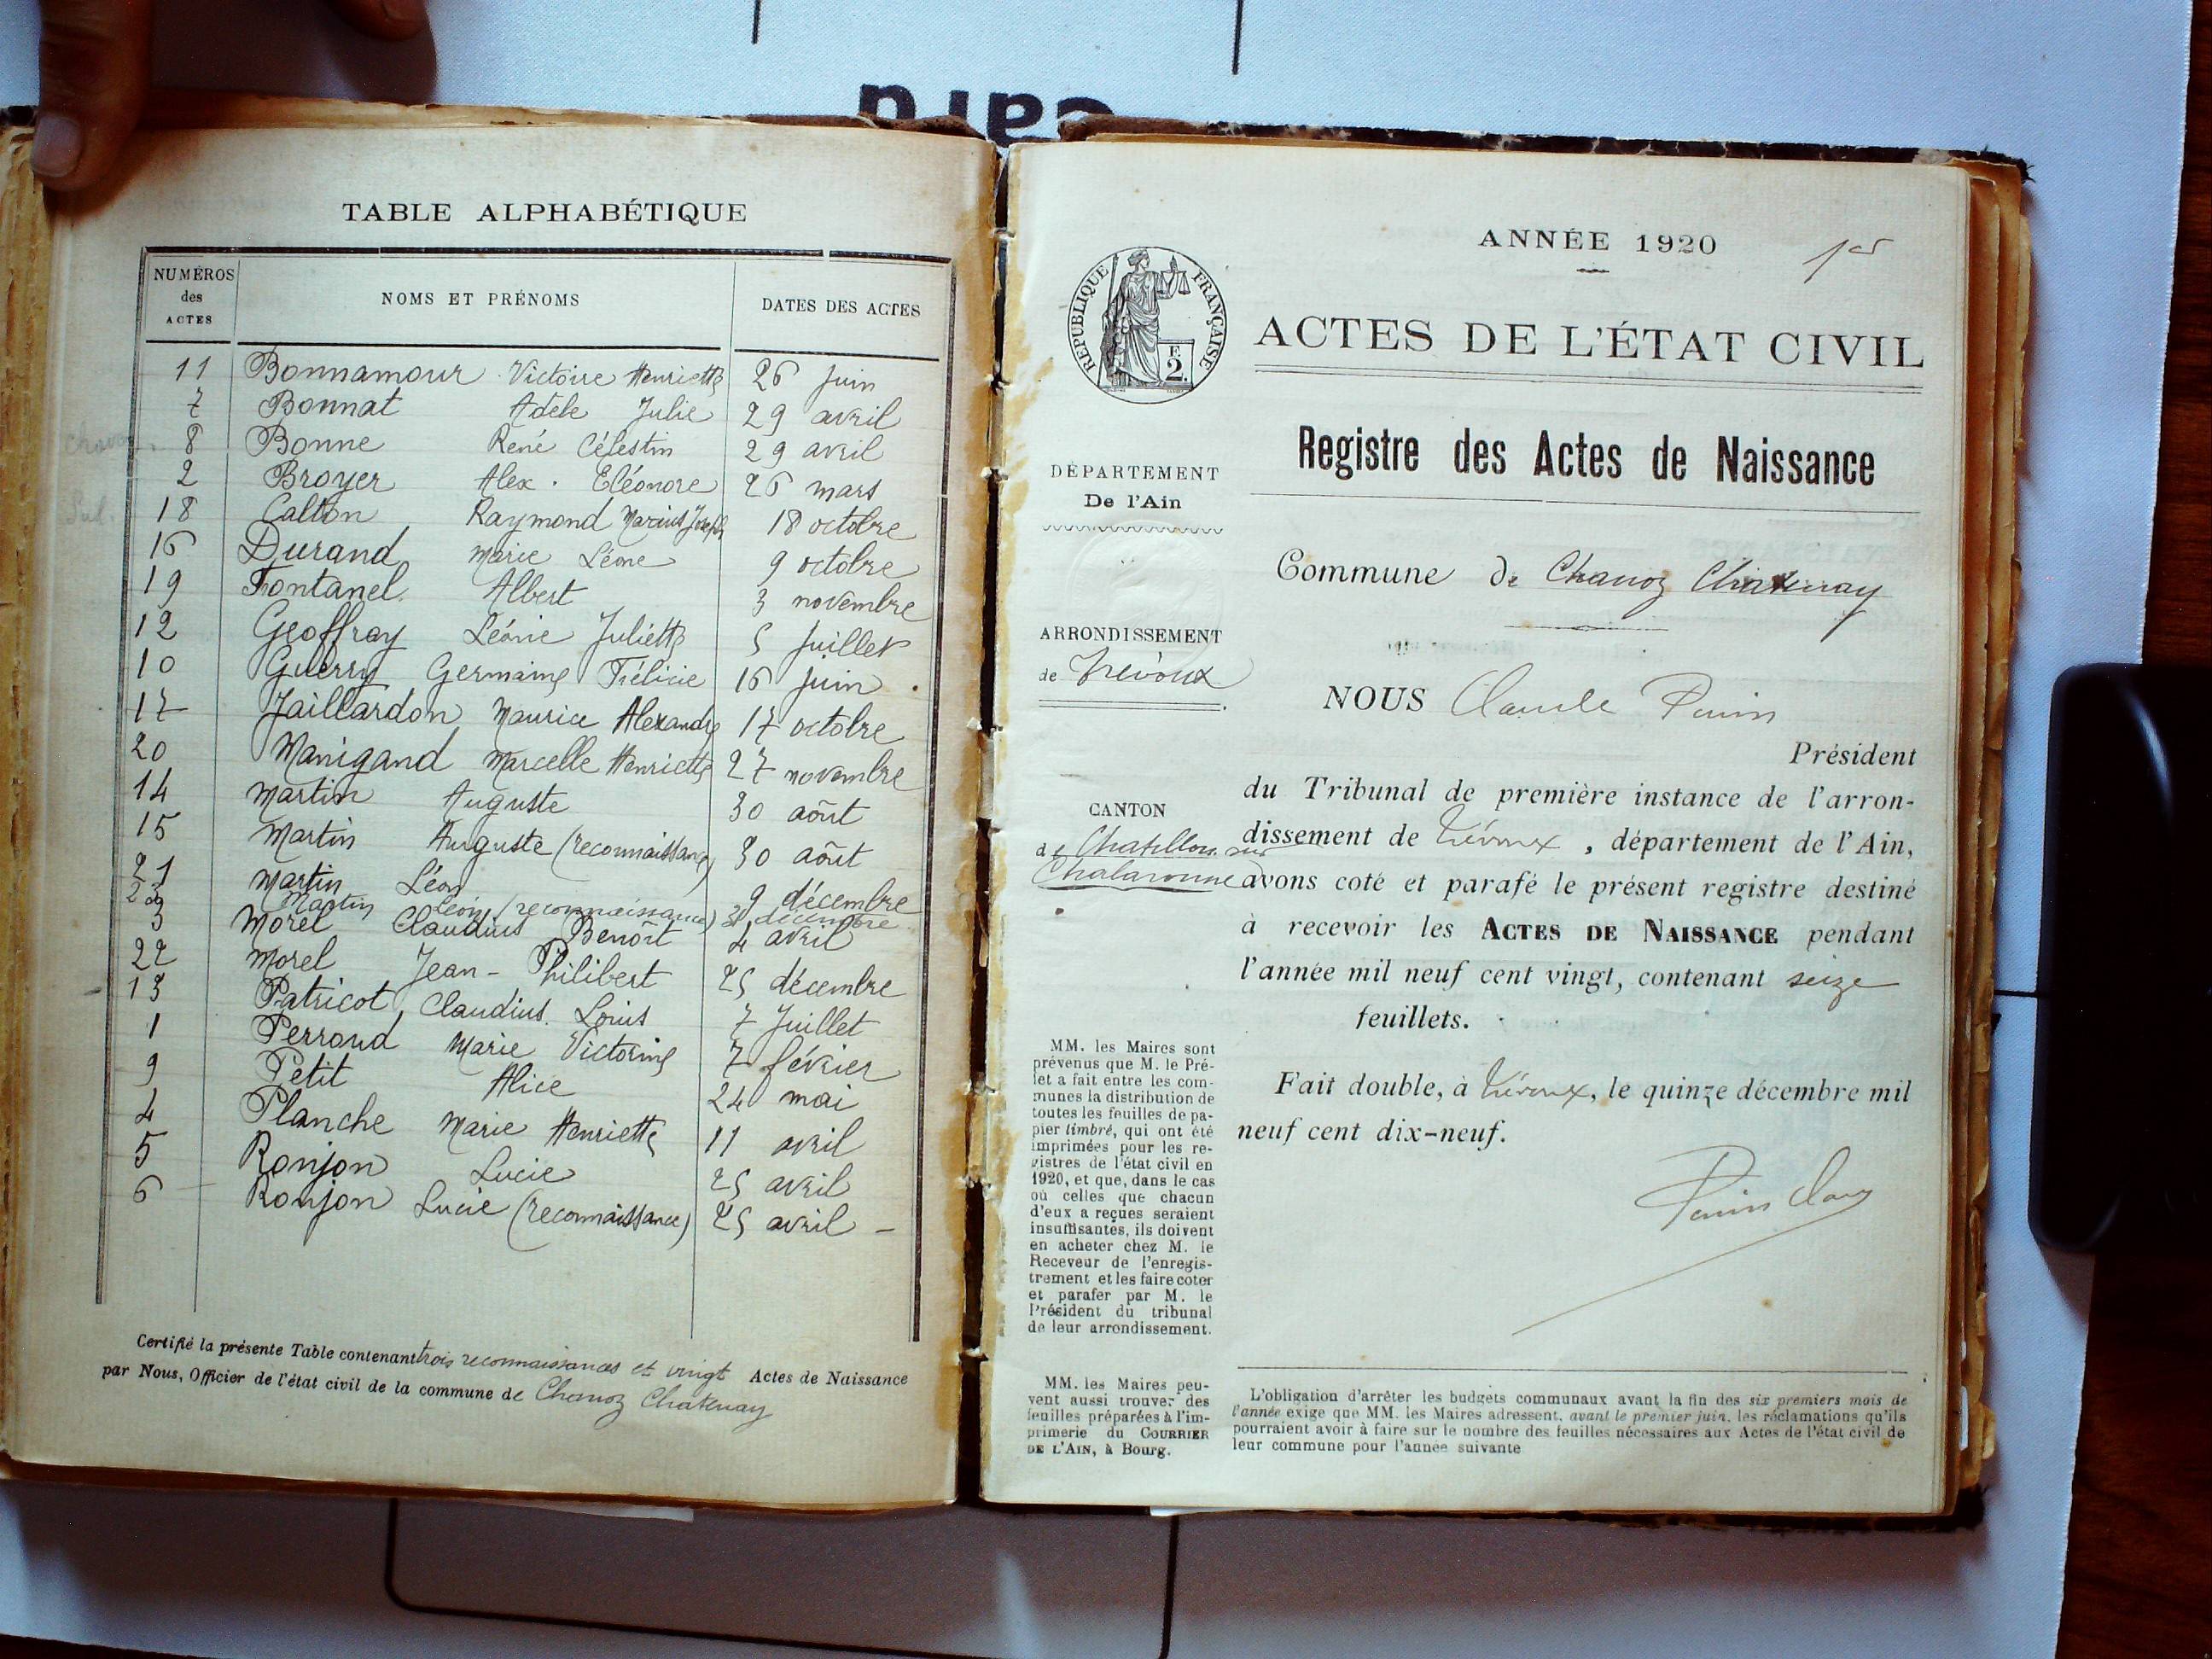 TABLE ALPHABÉTIQUE
NUMÉROS des ACTES NOMS ET PRÉNOMS DATES DES ACTES
11 Bonnamour Victoire Henriette 26 juin
7 Bonnat Adèle Julie 29 avril
8 Bonne René Célestin 29 avril
2 Broyer Alex. Eléonore 26 mars
18 Calton Raymond Marius Joseph 18 octobre
16 Durand Marie Léone 9 octobre
19 Fontanel Albert 3 novembre
12 Geoffray Léonie Juliette 5 Juillet
10 Guerry Germaine Félicie 16 juin
17 Jaillardon Maurice Alexandre 17 octobre
20 Manigand Marcelle Henriette 27 novembre
14 Martin Auguste 30 août
15 Martin Auguste (reconnaissance) 30 août
21 Martin Léon 9 décembre
23 Martin Léon (reconnaissance) 31 décembre
3 Morel Claudius Benoît 4 avril
22 Morel Jean-Philibert 25 décembre
13 Patricot Claudius Louis 7 Juillet
1 Perroud Marie Victorine 7 février
9 Petit Alice 24 mai
4 Planche Marie Henriette 11 avril
5 Ronjon Lucie 25 avril
6 Ronjon Lucie (reconnaissance) 25 avril -
Certifié la présente Table contenant trois reconnaissances et vingt Actes de Naissance
par Nous, Officier de l'état civil de la commune de Chanoz Chatenay
ANNÉE 1920
1er
RÉPUBLIQUE FRANÇAISE
F.
2.
ACTES DE L'ÉTAT CIVIL
Registre des Actes de Naissance
DÉPARTEMENT
De l'Ain
Commune de Chanoz Chatenay
ARRONDISSEMENT
de Trévoux
NOUS Claude Perrin
Président
du Tribunal de première instance de l'arron-
dissement de Trévoux, département de l'Ain,
avons coté et parafé le présent registre destiné
à recevoir les ACTES DE NAISSANCE pendant
l'année mil neuf cent vingt, contenant seize
feuillets.
CANTON
de Chatillon sur
Chalaronne
Fait double, à Trévoux, le quinze décembre mil
neuf cent dix-neuf.
MM. les Maires sont
prévenus que M. le Pré-
fet a fait entre les com-
munes la distribution de
toutes les feuilles de pa-
pier timbré, qui ont été
imprimées pour les re-
gistres de l'état civil en
1920, et que, dans le cas
où celles que chacun
d'eux a reçues seraient
insuffisantes, ils doivent
en acheter chez M. le
Receveur de l'enregis-
trement et les faire coter
et parafer par M. le
Président du tribunal
de leur arrondissement.
MM. les Maires peu-
vent aussi trouver des
feuilles préparées à l'im-
primerie du COURRIER
DE L'AIN, à Bourg.
L'obligation d'arrêter les budgets communaux avant la fin des six premiers mois de
l'année exige que MM. les Maires adressent, avant le premier juin, les réclamations qu'ils
pourraient avoir à faire sur le nombre des feuilles nécessaires aux Actes de l'état civil de
leur commune pour l'année suivante